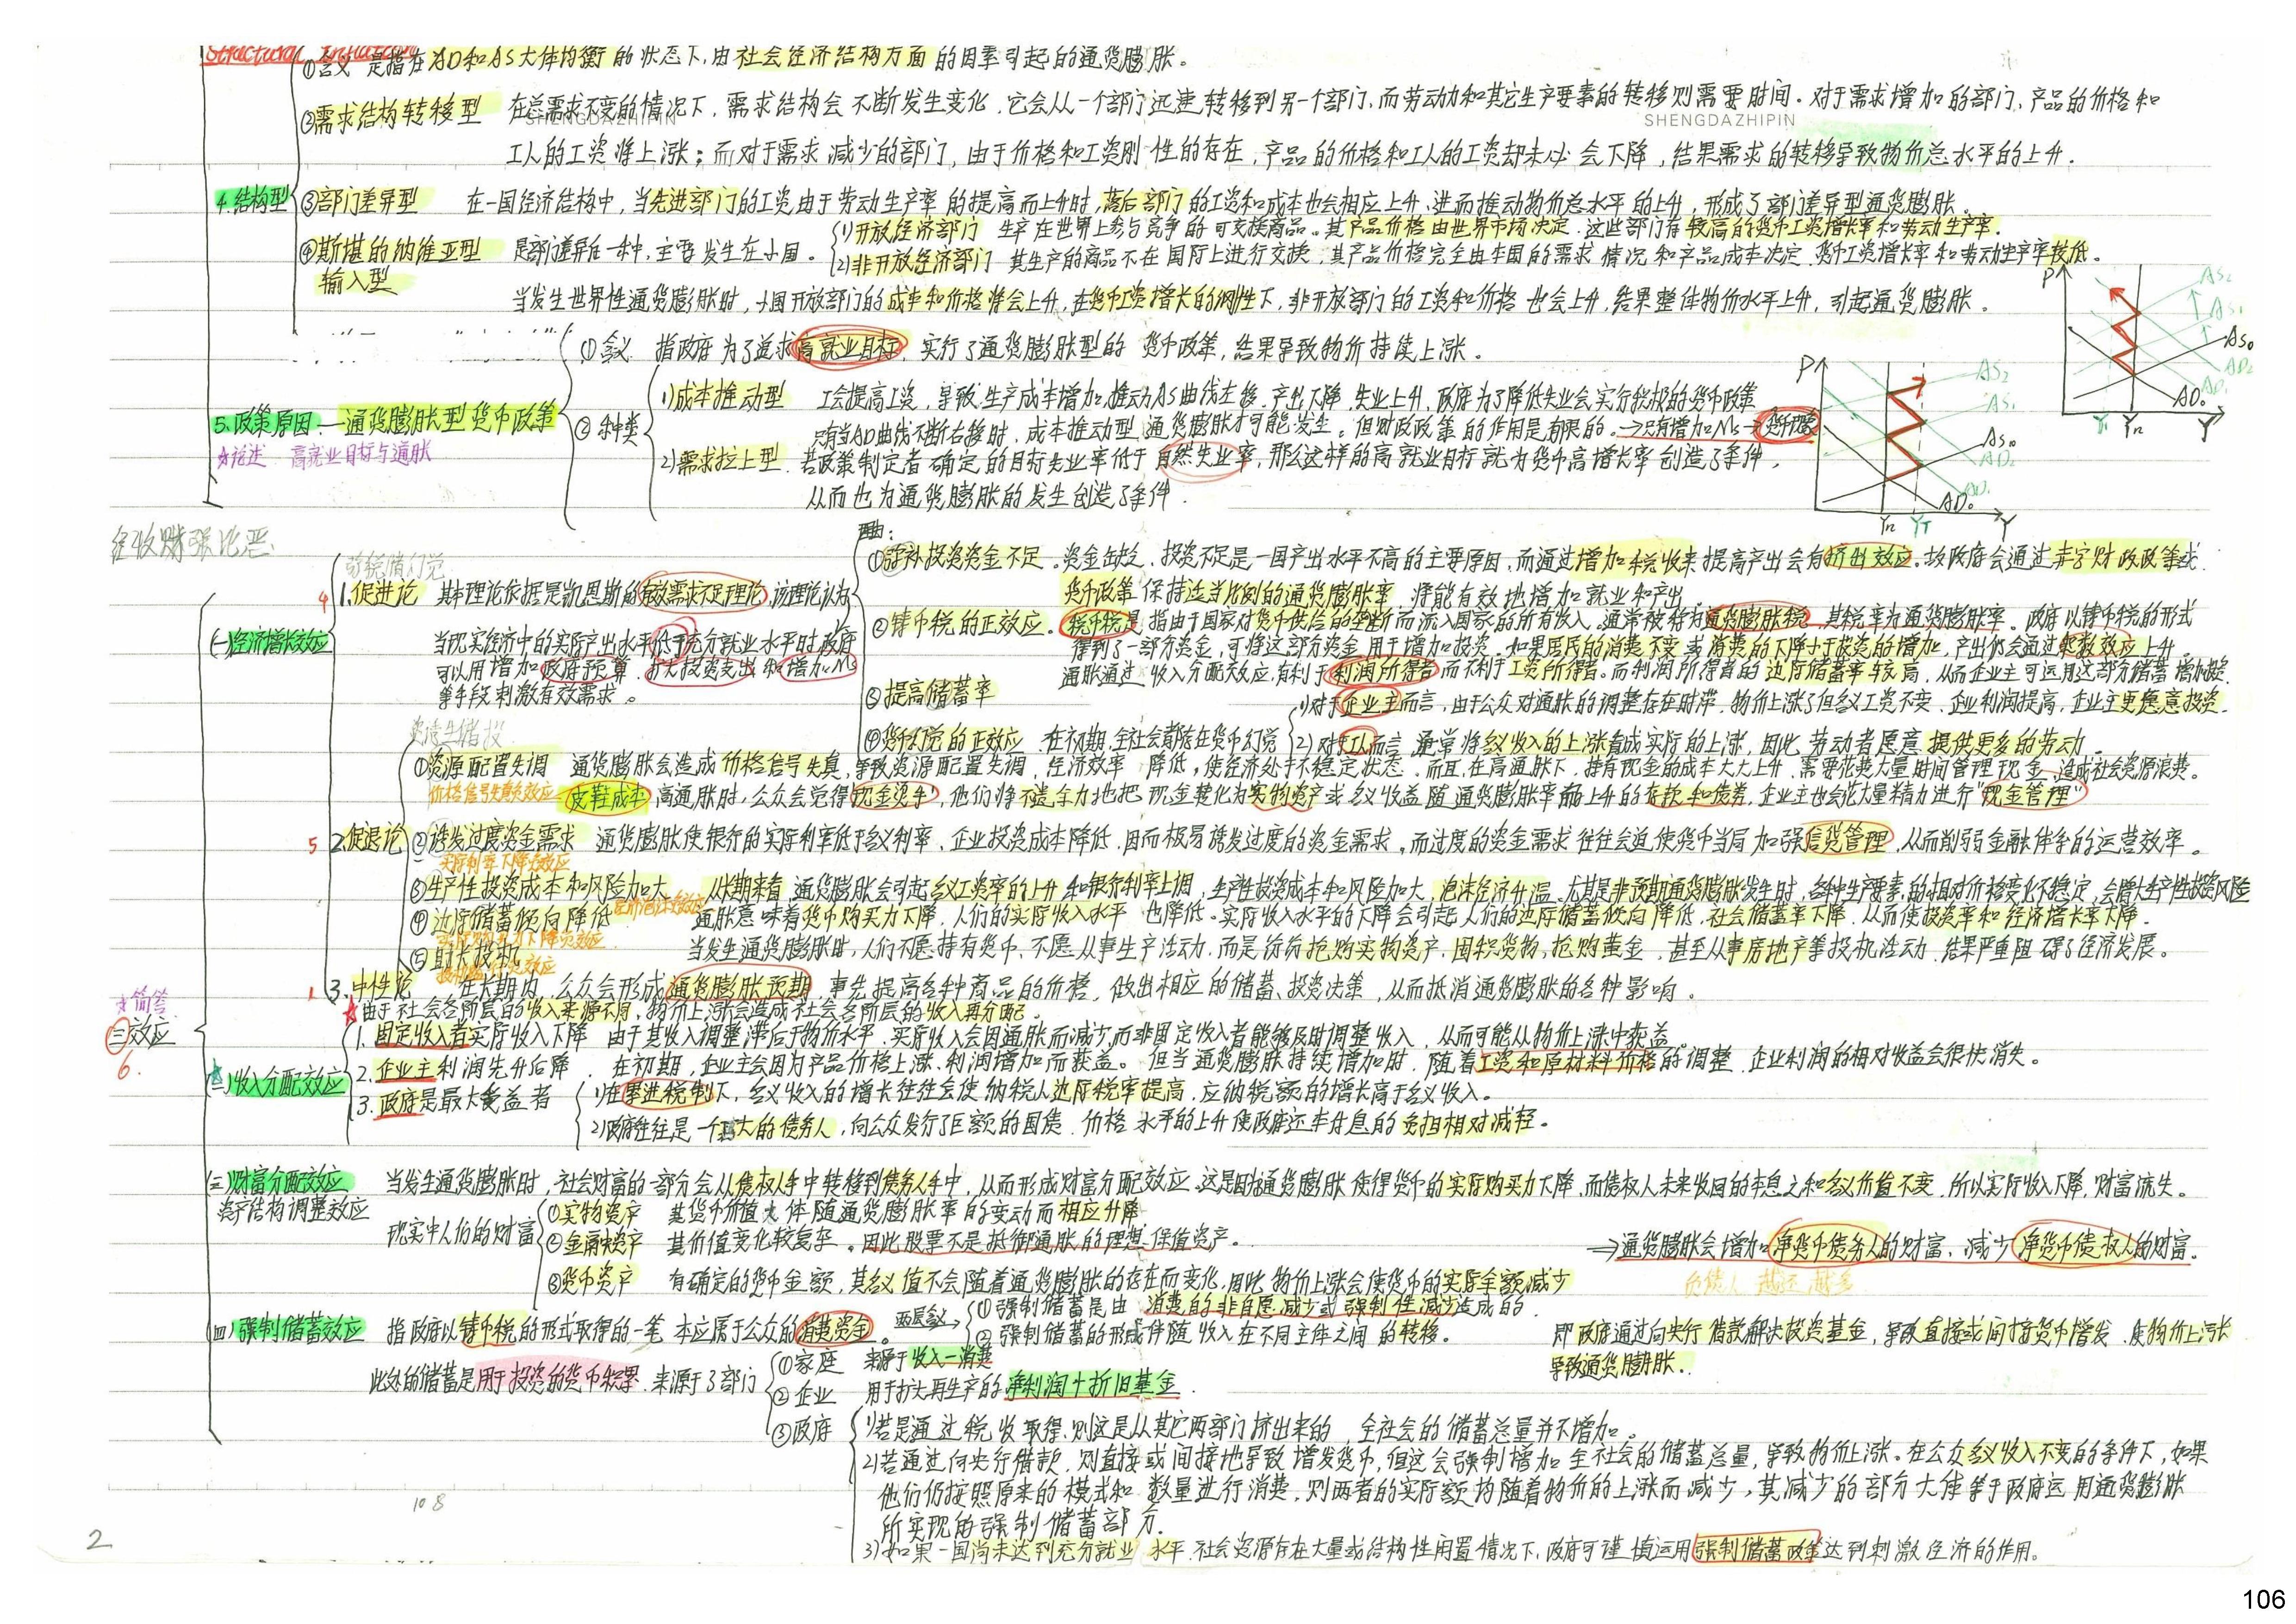 Structural Inflation
①含义 是指在AD和AS大体均衡的状态下,由社会经济结构方面的因素引起的通货膨胀。
②需求结构转移型 在总需求不变的情况下,需求结构会不断发生变化,它会从一个部门迅速转移到另一个部门,而劳动力和其它生产要素的转移则需要时间。对于需求增加的部门,产品的价格和
SHENGDAZHIPIN SHENGDAZHIPIN
工人的工资将上涨;而对于需求减少的部门,由于价格和工资刚性的存在,产品的价格和工人的工资却未必会下降,结果需求的转移导致物价总水平的上升.
4.结构型 ③部门差异型 在一国经济结构中,当先进部门的工资由于劳动生产率的提高而上升时,落后部门的工资和成本也会相应上升,进而推动物价总水平的上升,形成了部门差异型通货膨胀.
④斯堪的纳维亚型 是部门差异后一种,主要发生在小国。
输入型
(1)开放经济部门 生产在世界上参与竞争的可交换商品。其产品价格由世界市场决定.这些部门有较高的货币工资增长率和劳动生产率.
(2)非开放经济部门 其生产的商品不在国际上进行交换,其产品价格完全由本国的需求情况和产品成本决定.货币工资增长率和劳动生产率较低。
当发生世界性通货膨胀时,小国开放部门的成本和价格将会上升,在货币工资增长的刚性下,非开放部门的工资和价格也会上升,结果整体物价水平上升,引起通货膨胀。
P AS₂ AS₁ AS₀ AD₂ AD₁ AD₀ Y₁ Yn Y
5.政策原因——通货膨胀型货币政策
☆论述 高就业目标与通胀
①含义 指政府为了追求高就业目标,实行了通货膨胀型的货币政策,结果导致物价持续上涨。
②种类
1)成本推动型 工会提高工资,导致生产成本增加,推动AS曲线左移.产出下降.失业上升,政府为了降低失业会实行积极的货币政策
只有当AD曲线不断右移时,成本推动型通货膨胀才可能发生。但财政政策的作用是有限的.→只有增加Ms→
2)需求拉上型 若政策制定者确定的目标失业率低于自然失业率,那么这样的高就业目标就为货币高增长率创造了条件,
从而也为通货膨胀的发生创造了条件.
P AS₂ AS₁ AS₀ AD₂ AD₁ AD₀ Yn YT Y
经收财强论恶
☆简答
三效应
6.
(一)经济增长效应
1.促进论 其本理论依据是凯恩斯的有效需求不足理论,该理论认为
当现实经济中的实际产出水平低于充分就业水平时政府
可以用增加政府预算、扩大投资支出和增加Ms
等手段刺激有效需求。
4
理由:
①弥补投资资金不足。资金缺乏、投资不足是一国产出水平不高的主要原因,而通过增加税收来提高产出会有挤出效应.故政府会通过赤字财政政策或
货币政策保持适当比例的通货膨胀率,将能有效地增加就业和产出.
②铸币税的正效应。铸币税是指由于国家对货币供给的垄断而流入国家的所有收入.通常被称为通货膨胀税,其税率为通货膨胀率。政府以铸币税的形式
得到了一部分资金,可将这部分资金用于增加投资。如果居民的消费不变或消费的下降小于投资的增加,产出仍会通过乘数效应上升。
③提高储蓄率 通胀通过收入分配效应,有利于利润所得者而不利于工资所得者。而利润所得者的边际储蓄率较高,从而企业主可运用这部分储蓄增加投.
④货币幻觉的正效应.在初期,全社会都陷在货币幻觉
1)对于企业主而言,由于公众对通胀的调整存在时滞,物价上涨了但名义工资不变、企业利润提高,企业主更愿意投资.
2)对工人而言 通常将名义收入的上涨看成实际的上涨,因此劳动者愿意提供更多的劳动。
5 2.促退论
资透生储投
①资源配置失调 通货膨胀会造成价格信号失真,导致资源配置失调,经济效率降低,使经济处于不稳定状态.而且,在高通胀下,持有现金的成本大大上升.需要花费大量时间管理现金,造成社会资源浪费。
价格信号失真效应 皮鞋成本 高通胀时,公众会觉得现金烫手,他们将不遗余力地把现金转化为实物资产或名义收益随通货膨胀率而上升的存款和债券,企业主也会花大量精力进行“现金管理”
②诱发过度资金需求 通货膨胀使银行的实际利率低于名义利率、企业投资成本降低.因而极易诱发过度的资金需求.而过度的资金需求往往会迫使货币当局加强信贷管理,从而削弱金融体系的运营效率。
实际利率下降效应
③生产性投资成本和风险加大 从长期来看,通货膨胀会引起名义工资率的上升和银行利率上调,生产性投资成本和风险加大,泡沫经济升温.尤其是非预期通货膨胀发生时,各种生产要素的相对价格变化不稳定,会增大生产性投资风险
④边际储蓄倾向降低 通胀意味着货币购买力下降,人们的实际收入水平也降低。实际收入水平的下降会引起人们的边际储蓄倾向降低,社会储蓄率下降.从而使投资率和经济增长率下降.
⑤助长投机 当发生通货膨胀时,人们不愿持有货币、不愿从事生产活动,而是纷纷抢购实物资产,囤积货物,抢购黄金,甚至从事房地产等投机活动,结果严重阻碍了经济发展。
1 3.中性论 在长期内,公众会形成通货膨胀预期 事先提高各种商品的价格,做出相应的储蓄、投资决策,从而抵消通货膨胀的各种影响。
★由于社会各阶层的收入来源不同,物价上涨会造成社会各阶层的收入再分配。
(二)收入分配效应
1.固定收入者实际收入下降 由于其收入调整滞后于物价水平.实际收入会因通胀而减少,而非固定收入者能够及时调整收入,从而可能从物价上涨中获益.
2.企业主利润先升后降.在初期,企业主会因为产品价格上涨、利润增加而获益。但当通货膨胀持续增加时,随着工资和原材料价格的调整,企业利润的相对收益会很快消失。
3.政府是最大受益者
1)在累进税制下,名义收入的增长往往会使纳税人边际税率提高,应纳税额的增长高于名义收入。
2)政府往往是一个巨大的债务人,向公众发行了巨额的国债.价格水平的上升使政府还本付息的负担相对减轻。
(三)财富分配效应 当发生通货膨胀时,社会财富的一部分会从债权人手中转移到债务人手中,从而形成财富分配效应.这是因为通货膨胀使得货币的实际购买力下降.而债权人未来收回的本息之和名义价值不变.所以实际收入下降,财富流失。
资产结构调整效应
现实中人们的财富
①实物资产 其货币价值大体随通货膨胀率的变动而相应升降
②金融资产 其价值变化较复杂。因此股票不是抵御通胀的理想保值资产。
③货币资产 有确定的货币金额,其名义值不会随着通货膨胀的存在而变化,因此物价上涨会使货币的实际余额减少
⇒通货膨胀会增加净货币债务人的财富、减少净货币债权人的财富.
负债人 越还越多
(四)强制储蓄效应 指政府以铸币税的形式取得的一笔本应属于公众的消费资金。
两层含义→ ①强制储蓄是由消费的非自愿减少或强制性减少造成的.
②强制储蓄的形成伴随收入在不同主体之间的转移。
即政府通过向央行借款解决投资基金,导致直接或间接货币增发.使物价上涨
导致通货膨胀..
此处的储蓄是用于投资的货币积累,来源于3部门
①家庭 来源于收入—消费
②企业 用于扩大再生产的净利润+折旧基金.
③政府
1)若是通过税收取得,则这是从其它两部门挤出来的,全社会的储蓄总量并不增加。
2)若通过向央行借款,则直接或间接地导致增发货币,但这会强制增加全社会的储蓄总量,导致物价上涨。在公众名义收入不变的条件下,如果
他们仍按照原来的模式和数量进行消费,则两者的实际额均随着物价的上涨而减少,其减少的部分大体等于政府运用通货膨胀
所实现的强制储蓄部分.
3)如果一国尚未达到充分就业水平,社会资源存在大量或结构性闲置情况下,政府可谨慎运用强制储蓄政策达到刺激经济的作用。
108
2
106